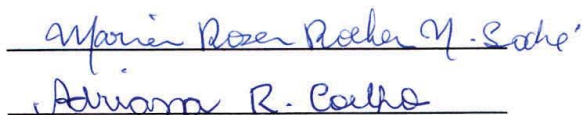 Maria Rosa Rocha M. Sodré
Adriana R. Coelho